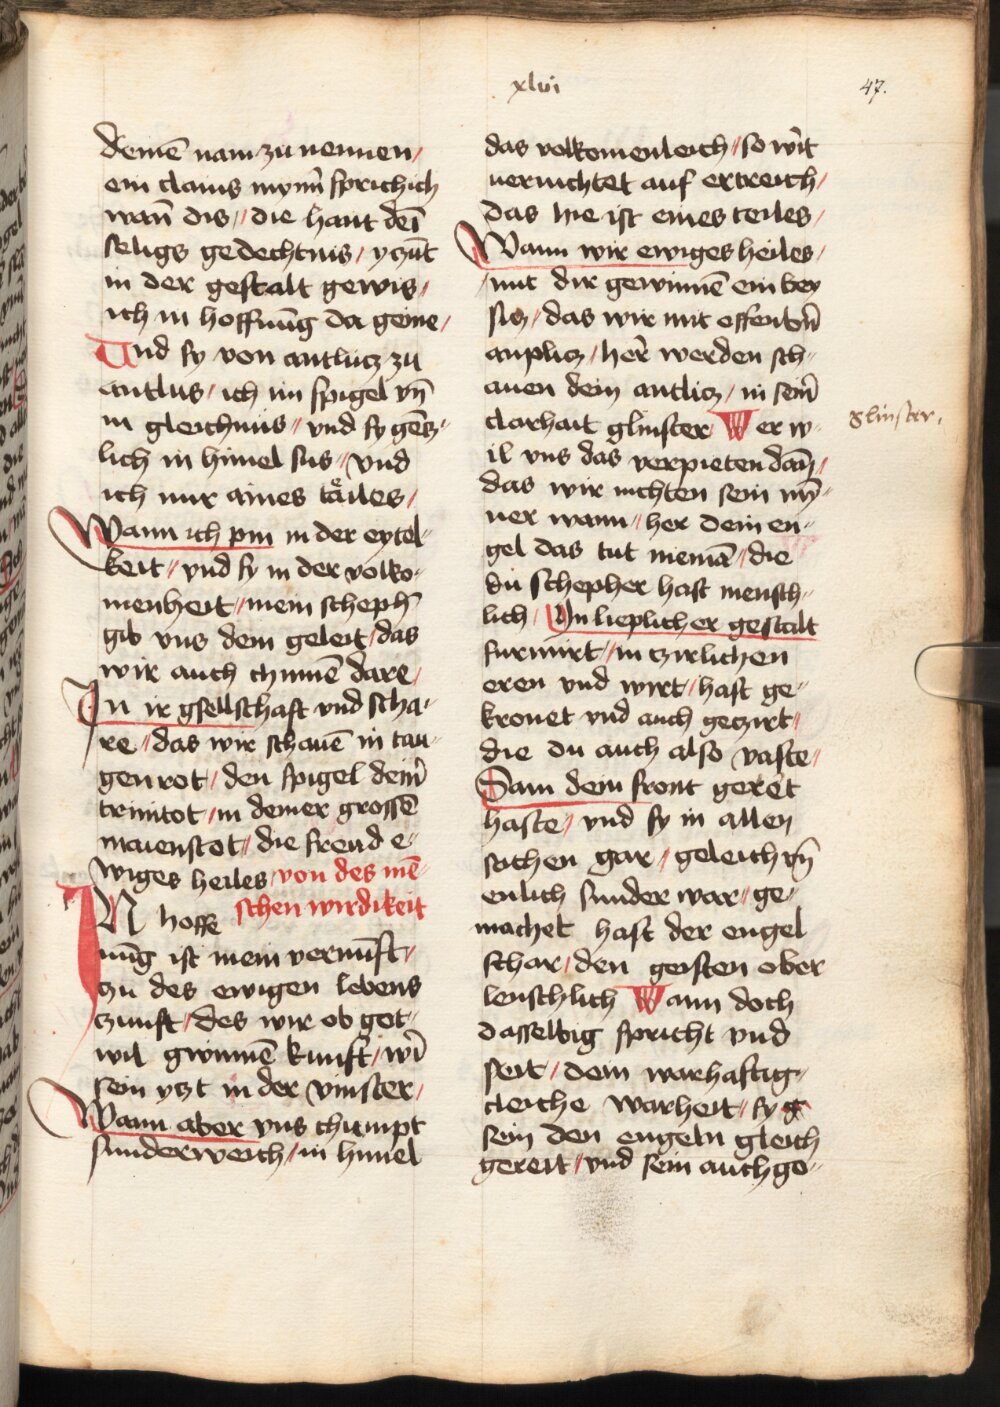 xlvi
47.
deinē nam zu nennen /
ein clains mym̄ sprich ich
wan̄ dis // die hant deī
seligs gedechtnis / yczūt
in der gestalt gewis /
ich in hoffnūg da geine /
Und sy von antlucz zu
antlus / ich im spigel vn̄
in gleichnus // vnd sy gēcz
lich in himel sus // vnd
ich nur aines tailes /
Wann ich pin in der eytel-
keit // vnd sy in der volko-
menheit // mein scheph̄
gib vns dein geleit / das
wir auch chumē dare /
In ir gsellschaft vnd scha-
re // das wir schauē in tau
gen rot / den spigel dein̄
trinitot / in deiner grossē
maienstot / die freud e-
wiges heiles / von des mē
schen wirdikeit
IN hoffe
nūg ist mein vernūft /
zu des ewigen lebens
zunft / des wir ob got
wil gwinnē kunft / wī
sein yczt in der vinster /
Wann aber vns chumpt
sunderweich / in himel
das volkomenleich / so wir̄t
vernichtet auf ertreich /
das hie ist eines teiles /
Wann wir ewiges heiles /
/ mit dir gewinnē ein bey
sicz / das wir mit offentn̄
anplicz / her̄ werden sch-
auen dein antlicz / in sein̄
clarhait glinster Wer w-
glinster.
il vns das verpieten dan̄ /
das wir nichten sein my-
ner wann // her dein en-
gel das tut niemā // die
du schepher hast mensch-
lich / In lieplicher gestalt
furmirt / in czirlichen
eren vnd wirt / hast ge-
kronet vnd auch geczirt /
die du auch also vaste /
Sam dem front geret
haste / vnd sy in allen
sachen gar // geleich vn̄
enlich sunder war // ge-
machet hast der engel
schar / den geisten ober
lenschlich Wann doch
dasselbig spricht vnd
seit / dein warhaftig-
cleiche warheit / sy
sein den engeln gleich
gereit / vnd sein auch go-